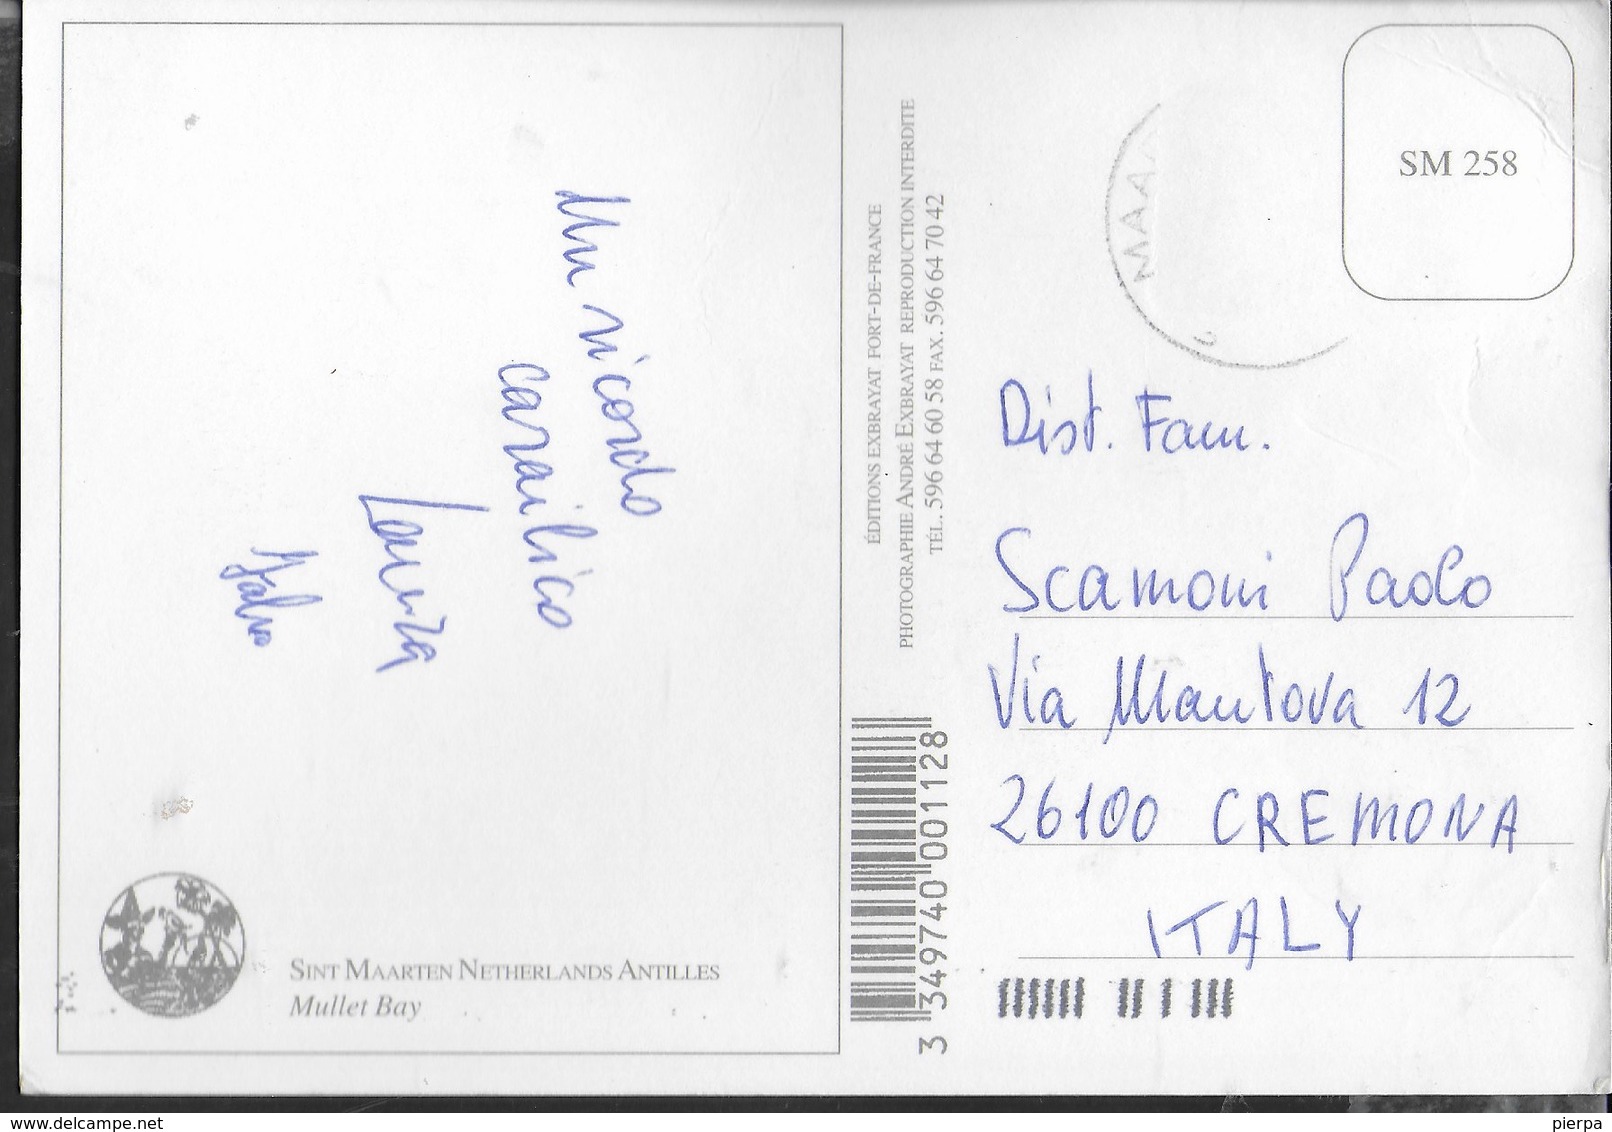 Un ricordo
caraibico
Laura
SINT MAARTEN NETHERLANDS ANTILLES
Mullet Bay
ÉDITIONS EXBRAYAT FORT-DE-FRANCE
PHOTOGRAPHIE ANDRÉ EXBRAYAT REPRODUCTION INTERDITE
TÉL. 596 64 60 58 FAX. 596 64 70 42
3 349740 001128
SM 258
MAA
Dist. Fam.
Scamoni Paolo
Via Mantova 12
26100 CREMONA
ITALY
www.delcampe.net
pierpa